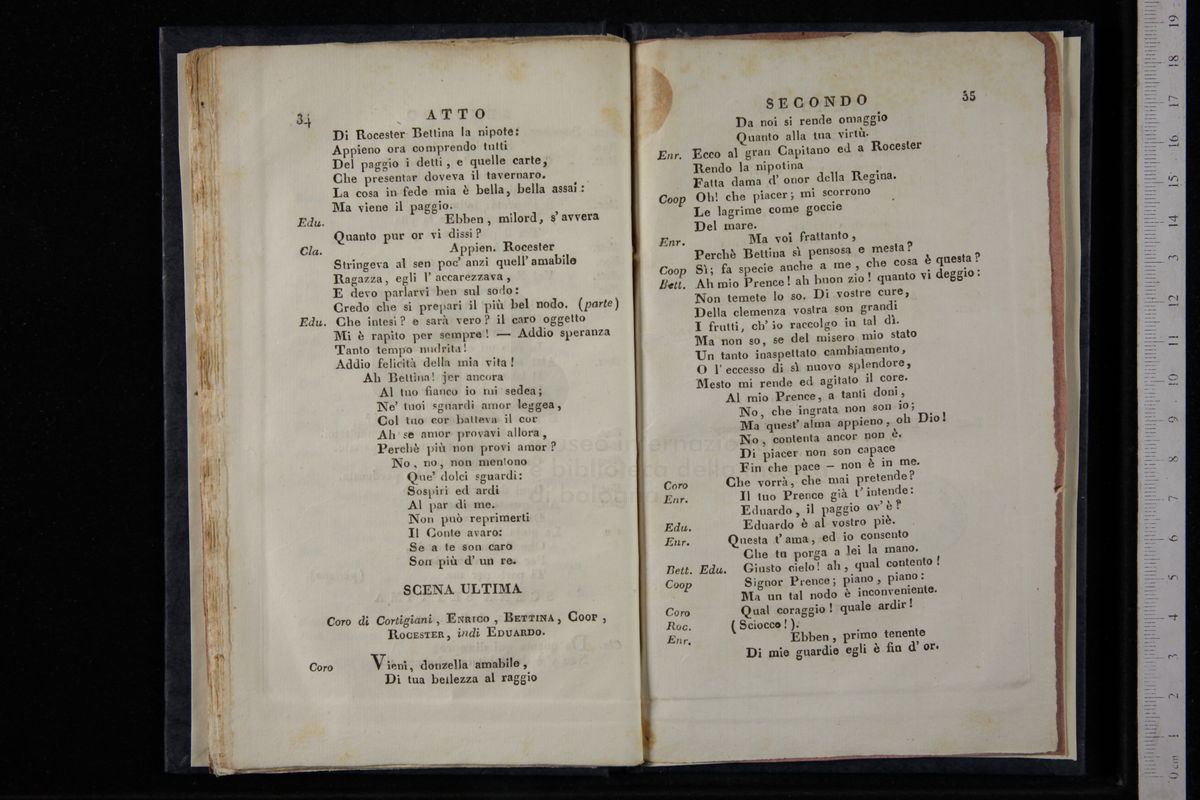 34
ATTO
Di Rocester Bettina la nipote:
Appieno ora comprendo tutti
Del paggio i detti, e quelle carte,
Che presentar doveva il tavernaro.
La cosa in fede mia è bella, bella assai:
Ma viene il paggio.
Edu. Ebben, milord, s'avvera
Quanto pur or vi dissi?
Cla. Appien. Rocester
Stringeva al sen poc' anzi quell' amabile
Ragazza, egli l' accarezzava,
E devo parlarvi ben sul sodo:
Credo che si prepari il più bel nodo. (parte)
Edu. Che intesi? e sarà vero? il caro oggetto
Mi è rapito per sempre! — Addio speranza
Tanto tempo nudrita!
Addio felicità della mia vita!
Ah Bettina! jer ancora
Al tuo fianco io mi sedea;
Ne' tuoi sguardi amor leggea,
Col tuo cor batteva il cor
Ah se amor provavi allora,
Perchè più non provi amor?
No, no, non mentono
Que' dolci sguardi:
Sospiri ed ardi
Al par di me.
Non può reprimerti
Il Conte avaro:
Se a te son caro
Son più d' un re.
SCENA ULTIMA
Coro di Cortigiani, ENRICO, BETTINA, COOP,
ROCESTER, indi EDUARDO.
Coro Vieni, donzella amabile,
Di tua bellezza al raggio
SECONDO
35
Da noi si rende omaggio
Quanto alla tua virtù.
Enr. Ecco al gran Capitano ed a Rocester
Rendo la nipotina
Fatta dama d' onor della Regina.
Coop Oh! che piacer; mi scorrono
Le lagrime come goccie
Del mare.
Enr. Ma voi frattanto,
Perchè Bettina sì pensosa e mesta?
Coop Sì; fa specie anche a me, che cosa è questa?
Bett. Ah mio Prence! ah buon zio! quanto vi deggio:
Non temete lo so. Di vostre cure,
Della clemenza vostra son grandi
I frutti, ch' io raccolgo in tal dì.
Ma non so, se del misero mio stato
Un tanto inaspettato cambiamento,
O l' eccesso di sì nuovo splendore,
Mesto mi rende ed agitato il core.
Al mio Prence, a tanti doni,
No, che ingrata non son io;
Ma quest' alma appieno, oh Dio!
No, contenta ancor non è.
Di piacer non son capace
Fin che pace – non è in me.
Coro Che vorrà, che mai pretende?
Enr. Il tuo Prence già t' intende:
Eduardo, il paggio ov' è?
Edu. Eduardo è al vostro piè.
Enr. Questa t' ama, ed io consento
Che tu porga a lei la mano.
Bett. Edu. Giusto cielo! ah, qual contento!
Coop Signor Prence; piano, piano:
Ma un tal nodo è inconveniente.
Coro Qual coraggio! quale ardir!
Roc. (Sciocco!).
Enr. Ebben, primo tenente
Di mie guardie egli è fin d' or.